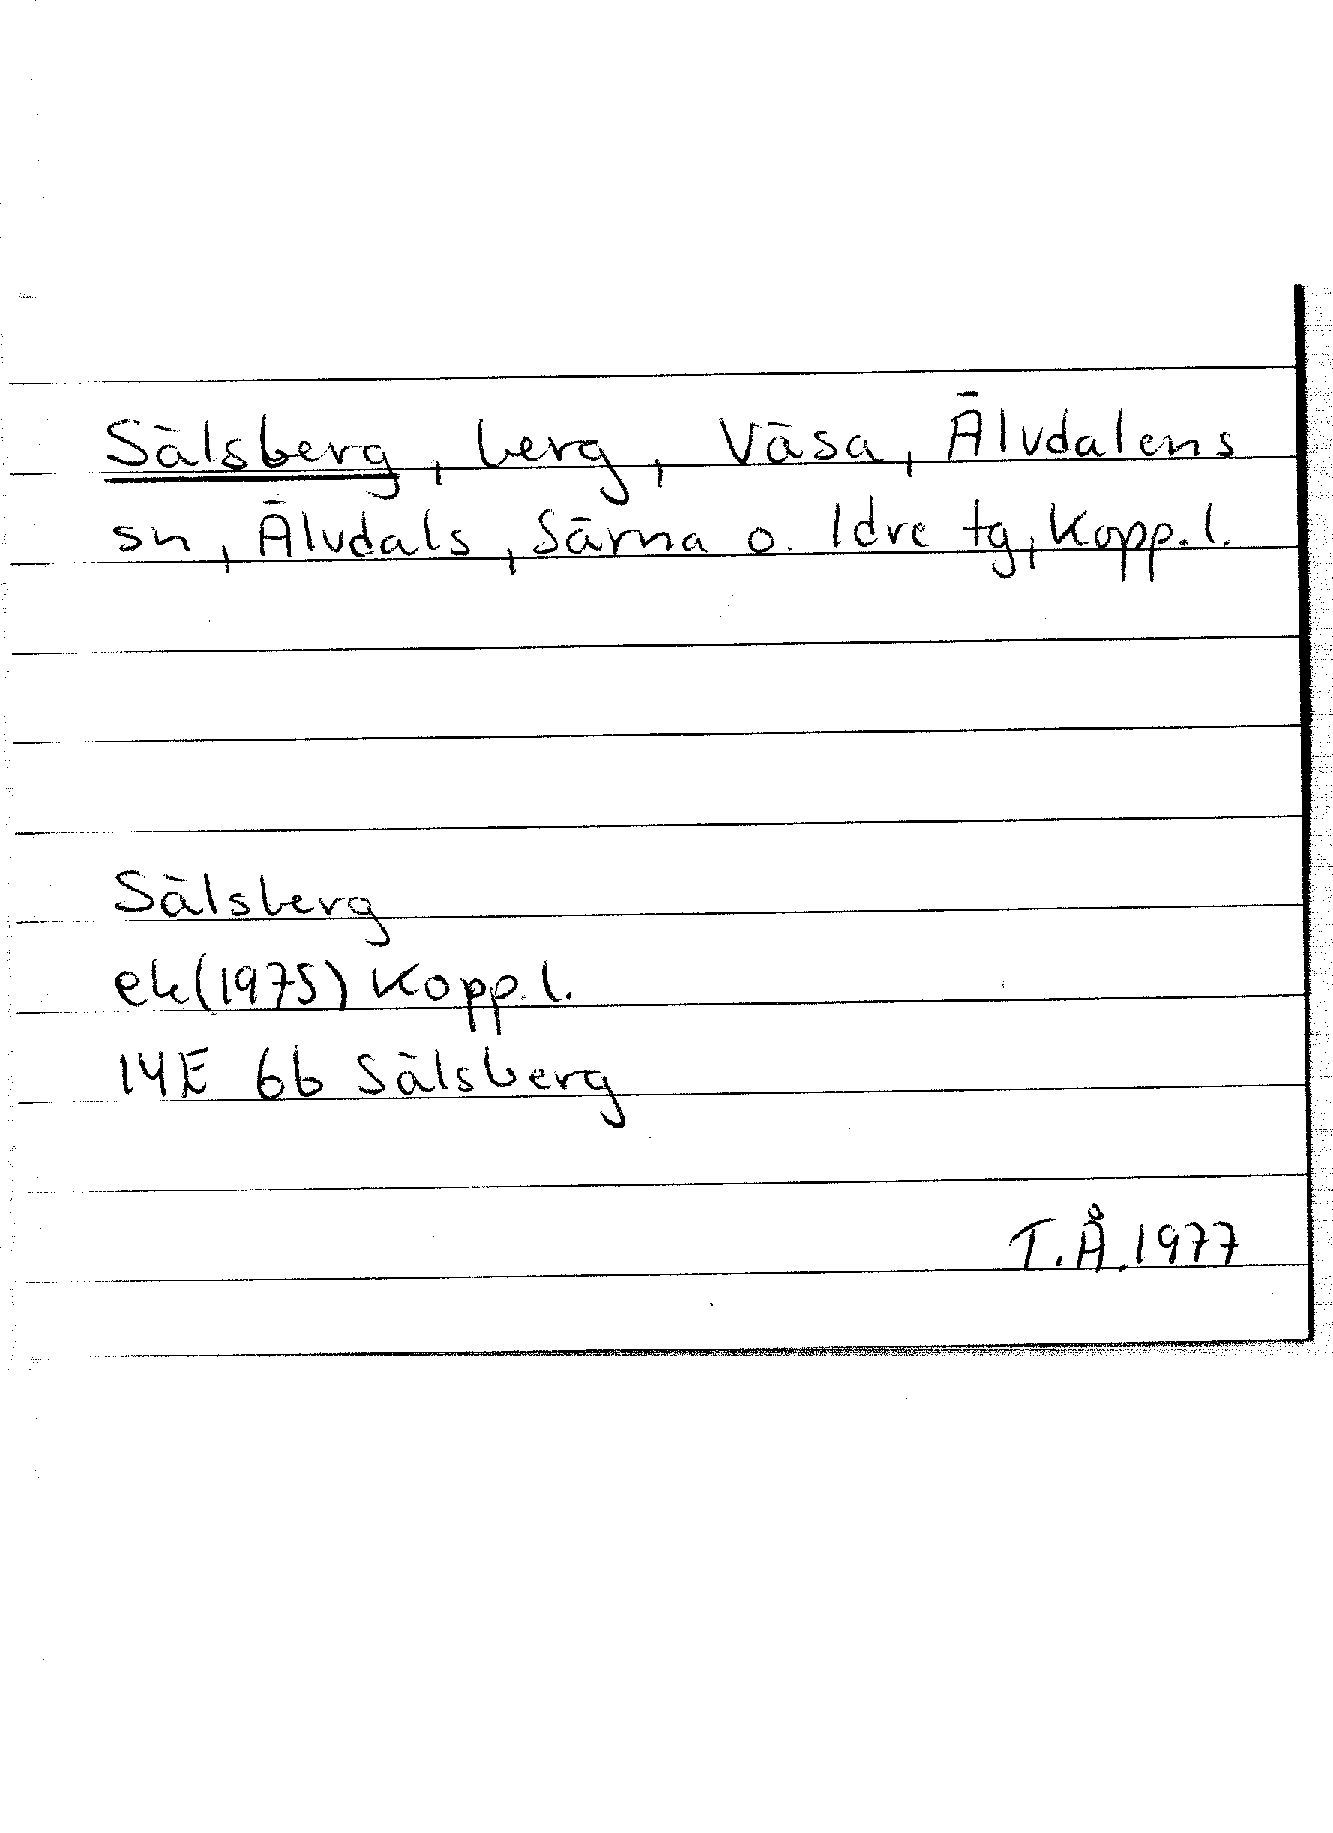 Sälsberg, berg, Väsa, Älvdalens
sn, Älvdals, Särna o. Idre tg, Kopp. l.
Sälsberg
ek (1975) Kopp. l.
14E 6b Sälsberg
T.Å. 1977